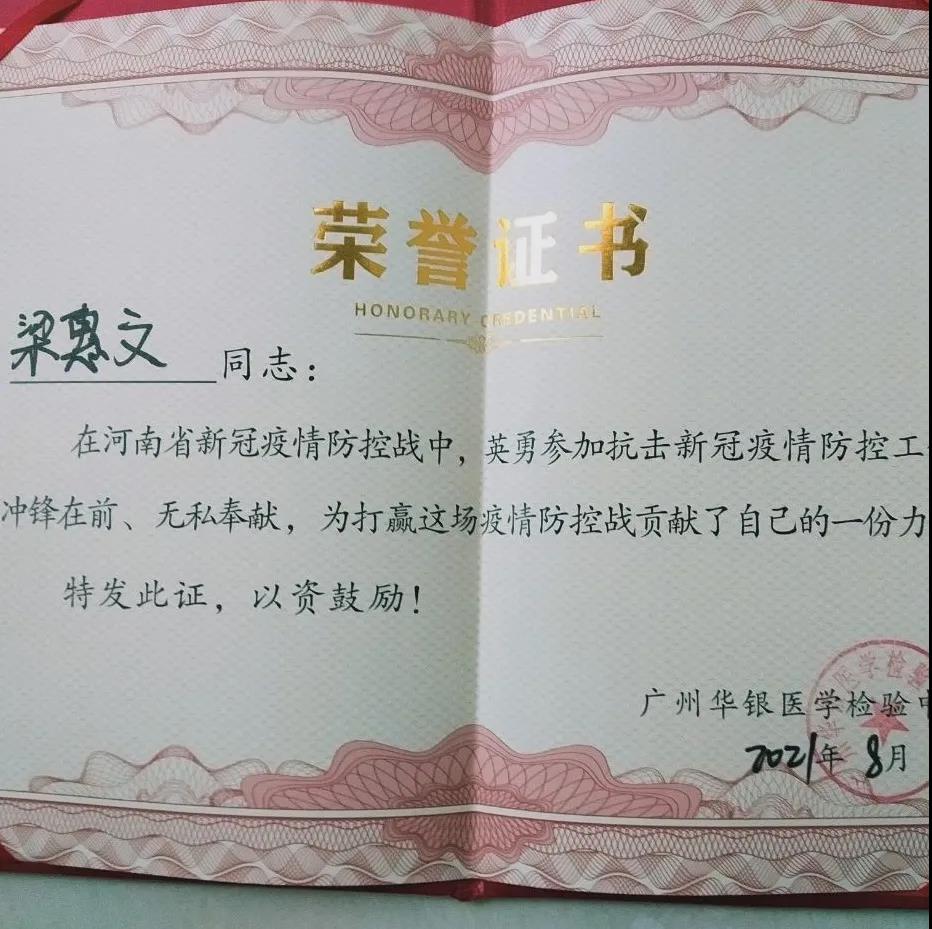 荣誉证书
HONORARY CREDENTIAL
梁惠文 同志：
在河南省新冠疫情防控战中，英勇参加抗击新冠疫情防控工
冲锋在前、无私奉献，为打赢这场疫情防控战贡献了自己的一份力
特发此证，以资鼓励！
医学检验
广州华银医学检验中
2021年8月